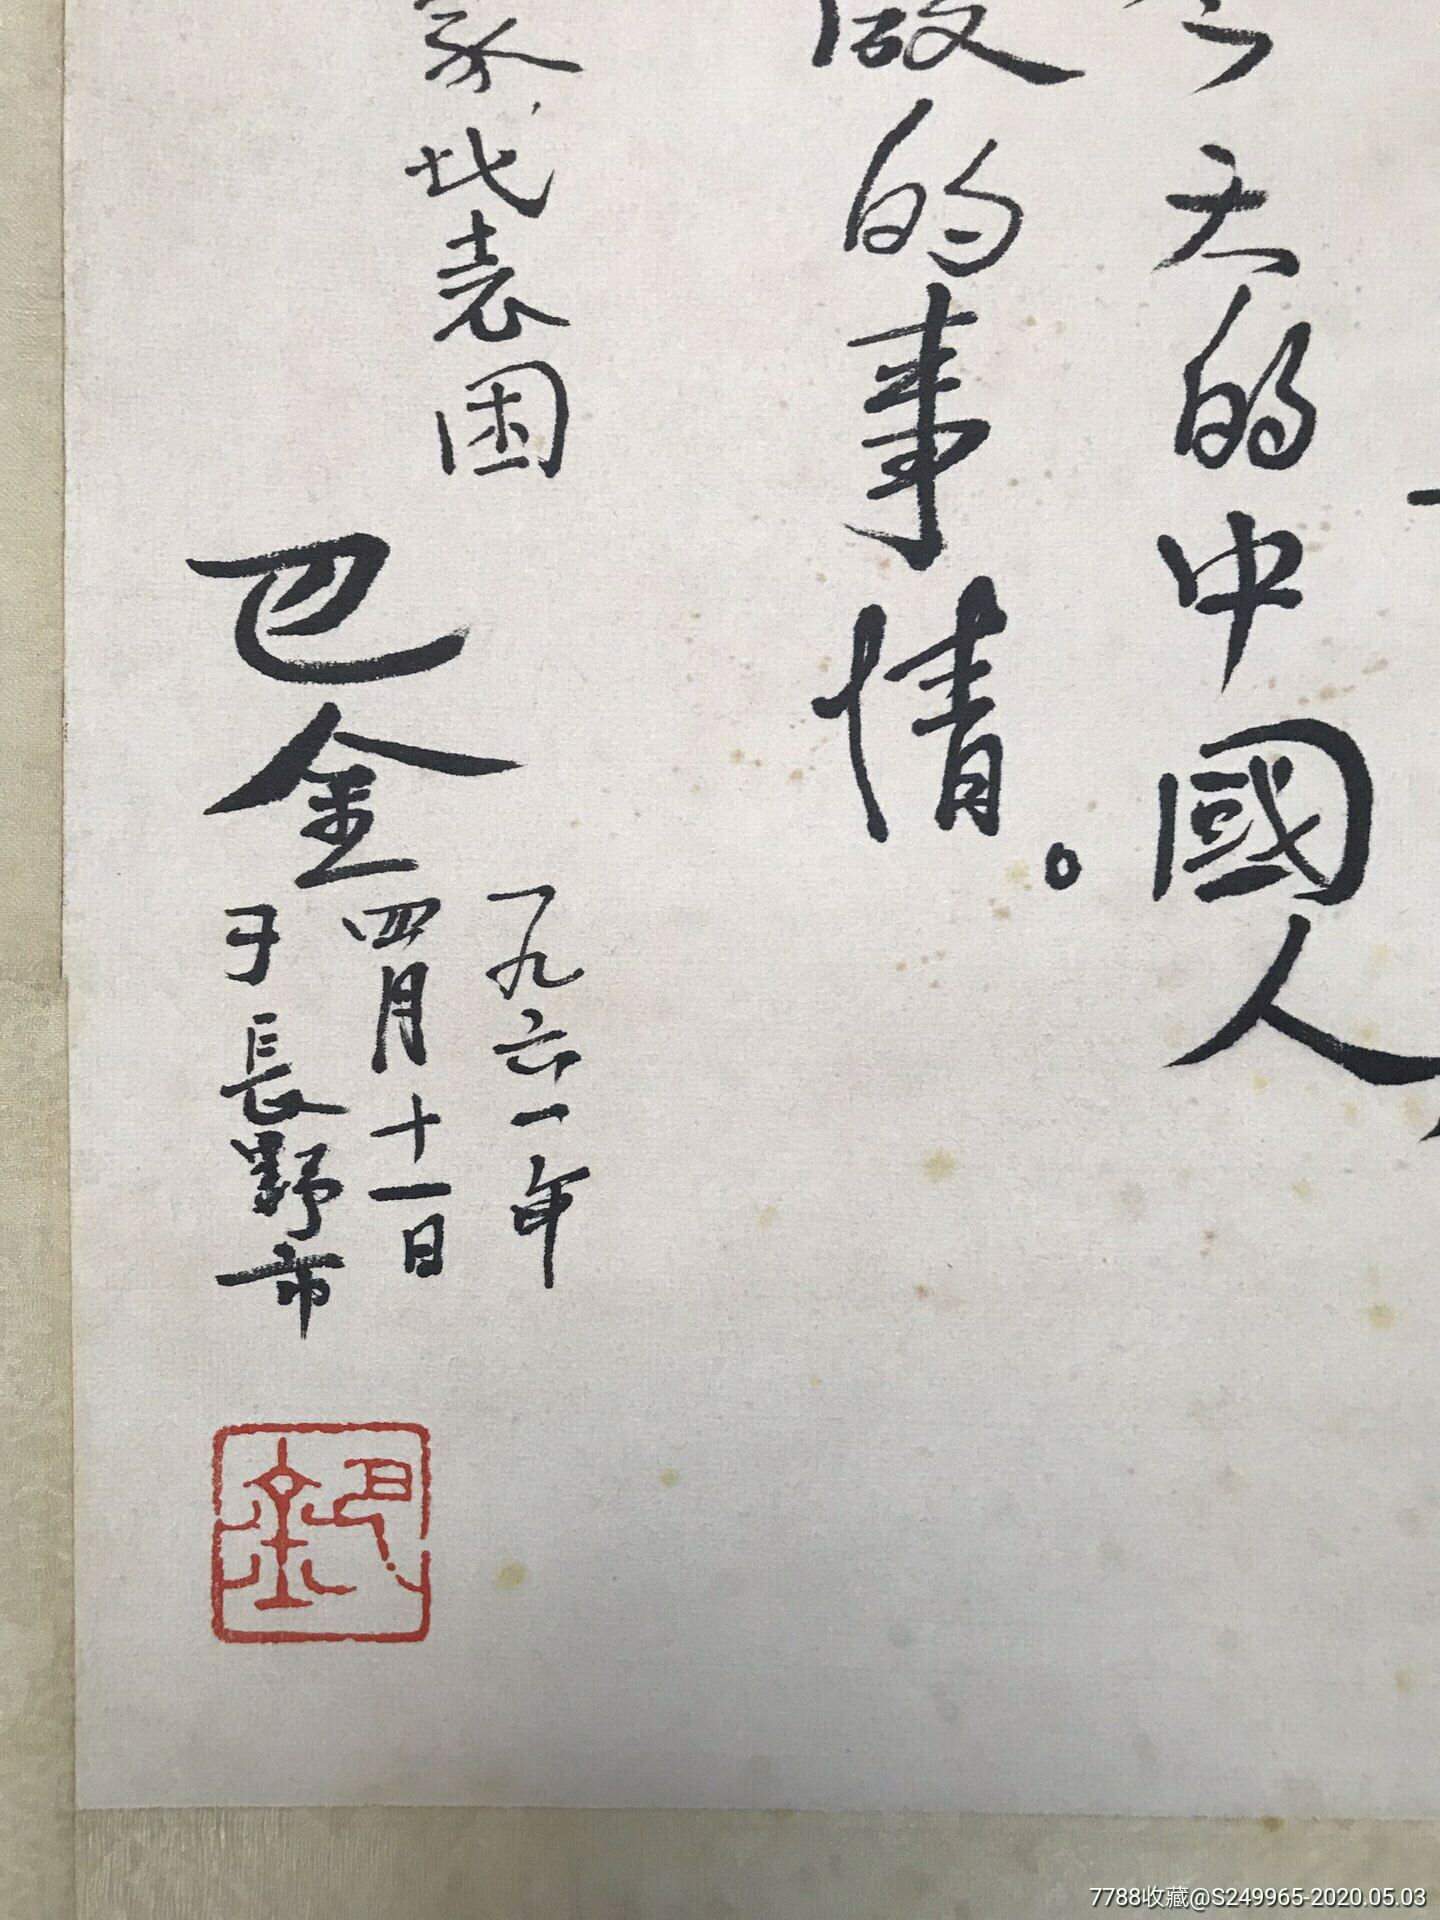 今天的中國人
做的事情。
家代表团
巴金
一九六一年
四月十一日
于長野市
巴金
7788收藏@S249965-2020.05.03